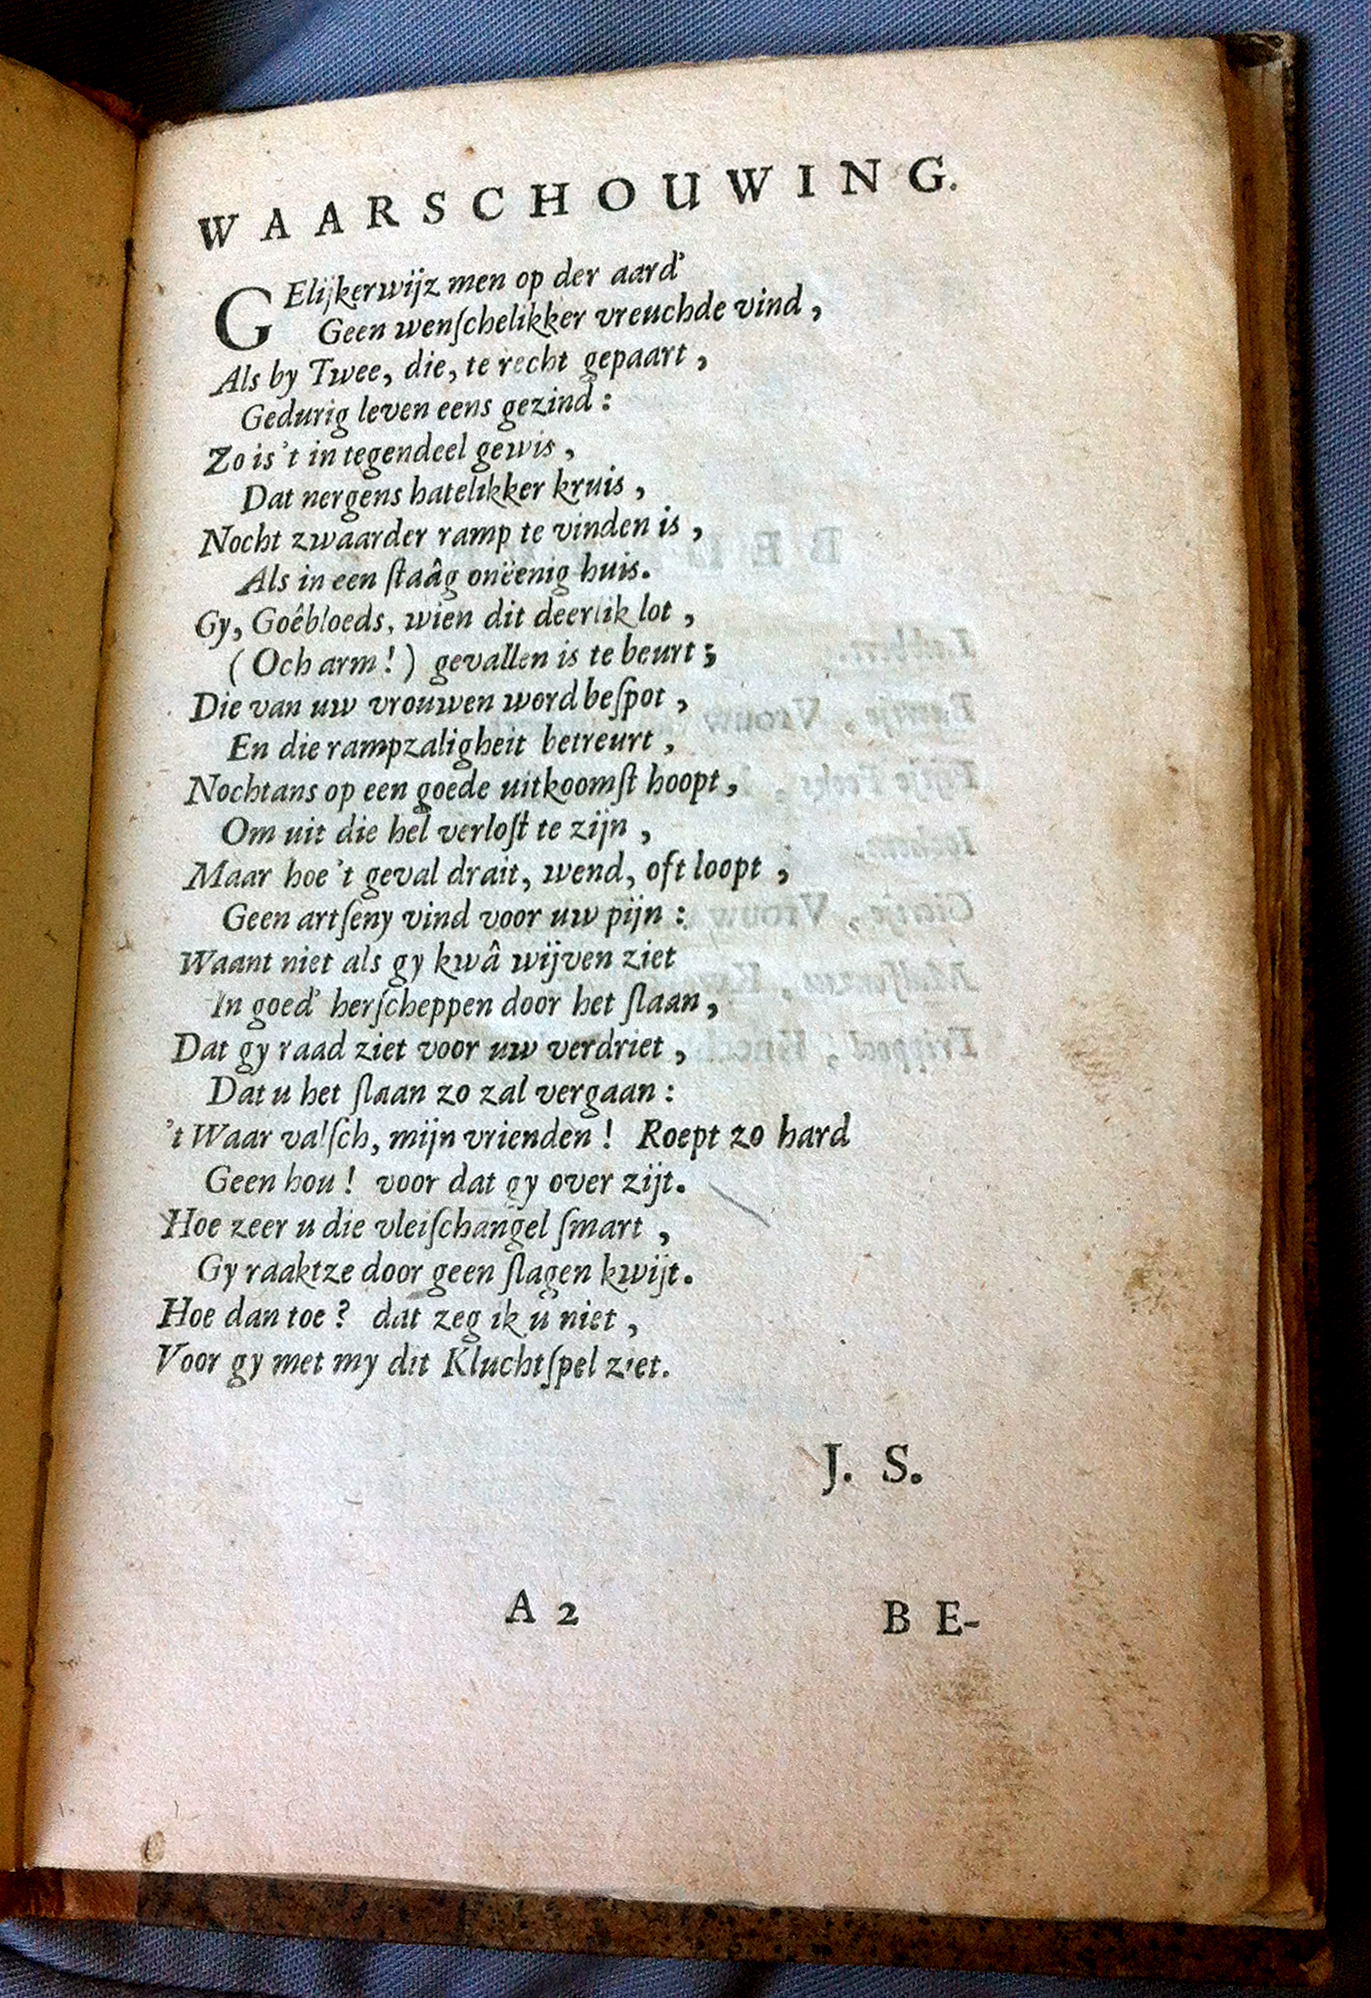 WAARSCHOUWING.
GElijkerwijz men op der aard'
Geen wenſchelikker vreuchde vind,
Als by Twee, die, te recht gepaart,
Gedurig leven eens gezind:
Zo is 't in tegendeel gewis,
Dat nergens hatelikker kruis,
Nocht zwaarder ramp te vinden is,
Als in een ſtaâg onëenig huis.
Gy, Goêbloeds, wien dit deerlik lot,
(Och arm!) gevallen is te beurt;
Die van uw vrouwen word beſpot,
En die rampzaligheit betreurt,
Nochtans op een goede uitkoomſt hoopt,
Om uit die hel verloſt te zijn,
Maar hoe 't geval drait, wend, oft loopt,
Geen artſeny vind voor uw pijn:
Waant niet als gy kwâ wijven ziet
In goed' herſcheppen door het ſlaan,
Dat gy raad ziet voor uw verdriet,
Dat u het ſlaan zo zal vergaan:
't Waar valſch, mijn vrienden! Roept zo hard
Geen hou! voor dat gy over zijt.
Hoe zeer u die vleiſchangel ſmart,
Gy raaktze door geen ſlagen kwijt.
Hoe dan toe? dat zeg ik u niet,
Voor gy met my dit Kluchtſpel ziet.
J. S.
A 2 BE-